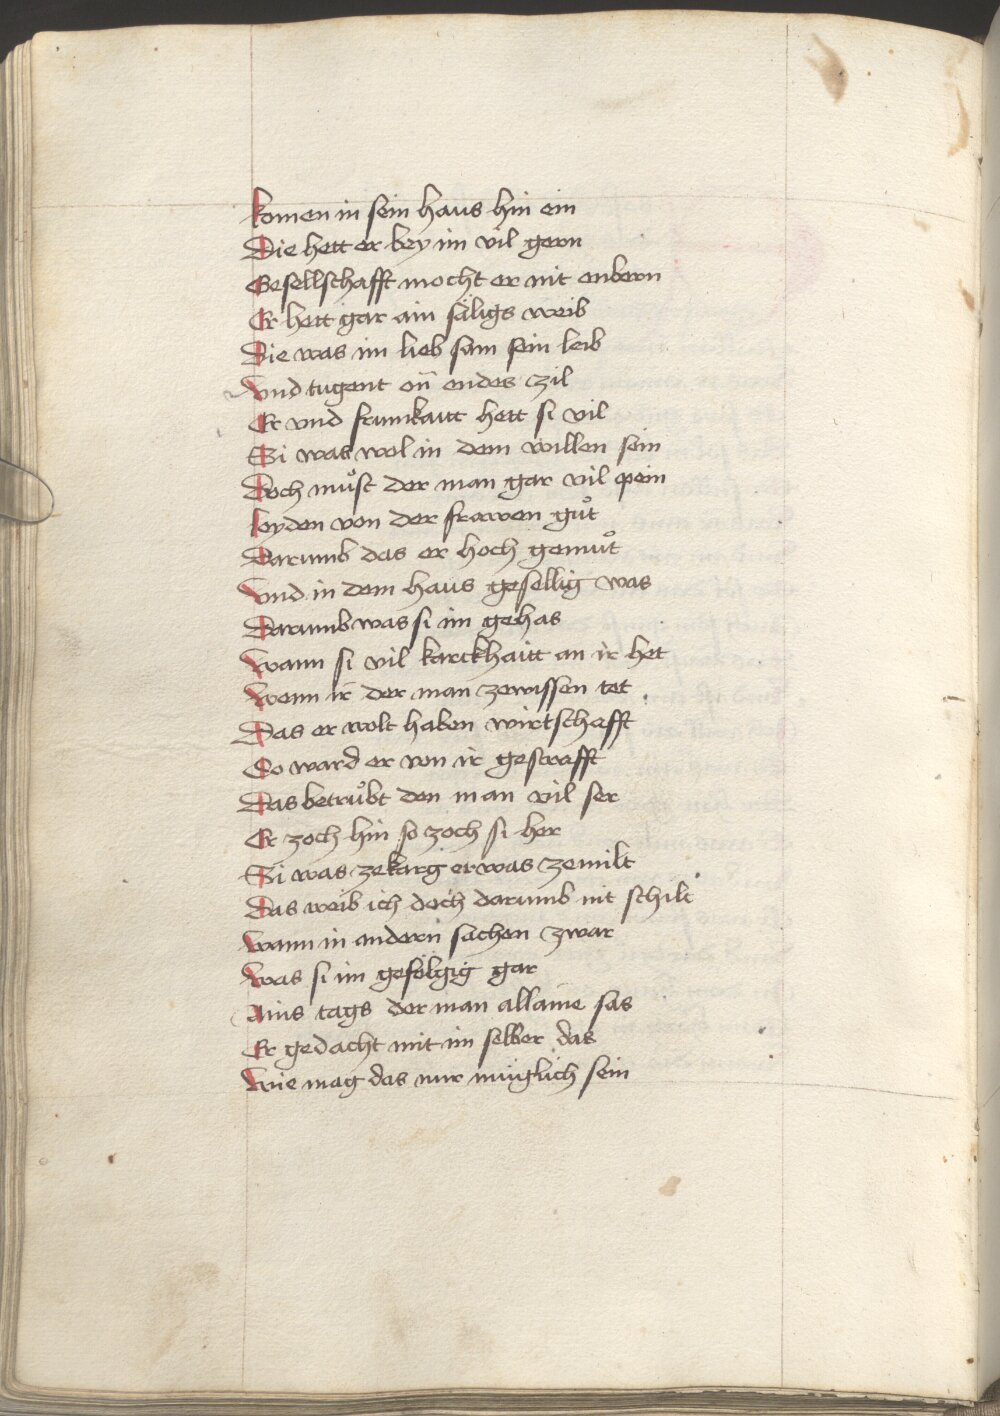 komen in sein haus hin ein
Die hett er bey im vil gern
Gesellschafft mocht er nit enbern
Er hett gar ain säligs weib
Die was im lieb sam sein leib
Vnd tugent on̄ endes zil
Er vnd frumkaitt hett si vil
Si was wol in dem willen sein
Doch muͦst der man gar vil pein
leyden von der frawen guͦt
Darumb das er hoch gemuͦt
Vnd in dem haus gesellig was
Darumb was si im gehas
Wann si vil karckhaitt an ir het
Wenn ir der man zewissen tet
Das er wolt haben wirtschefft
So ward er von ir gestrafft
Das betruͦbt den man vil ser
Er zoch hin so zoch si her
Si was zekarg er was zemilt
Das weib ich doch darumb nit schilt
Wann in andern sachen zwar
Was si im gefölgig gar
Ains tags der man allaine sas
Er gedacht mit im selber das
Wie mag das nur müglich sein